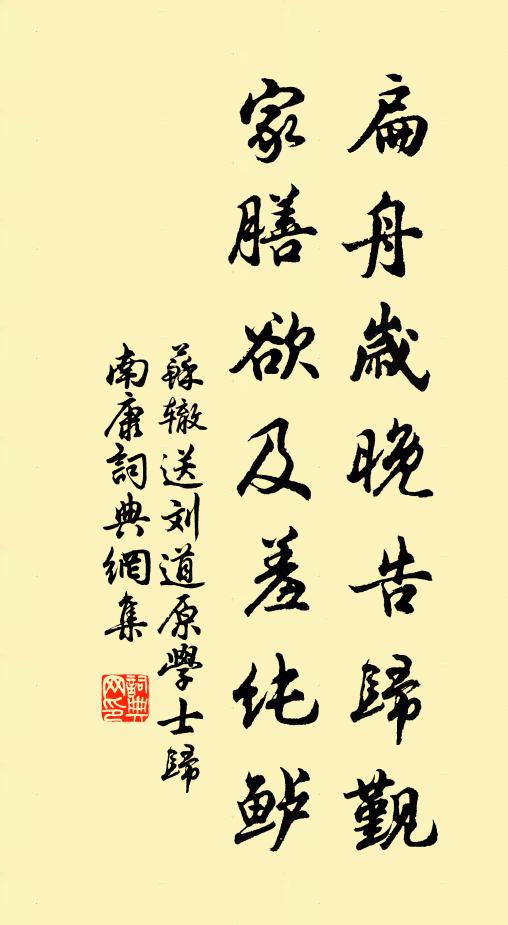 扁舟歳晚告歸觐
家膳欲及羞纯鲈
蘇辙送刘道原學士歸
南康詞典網集
詞典
网印